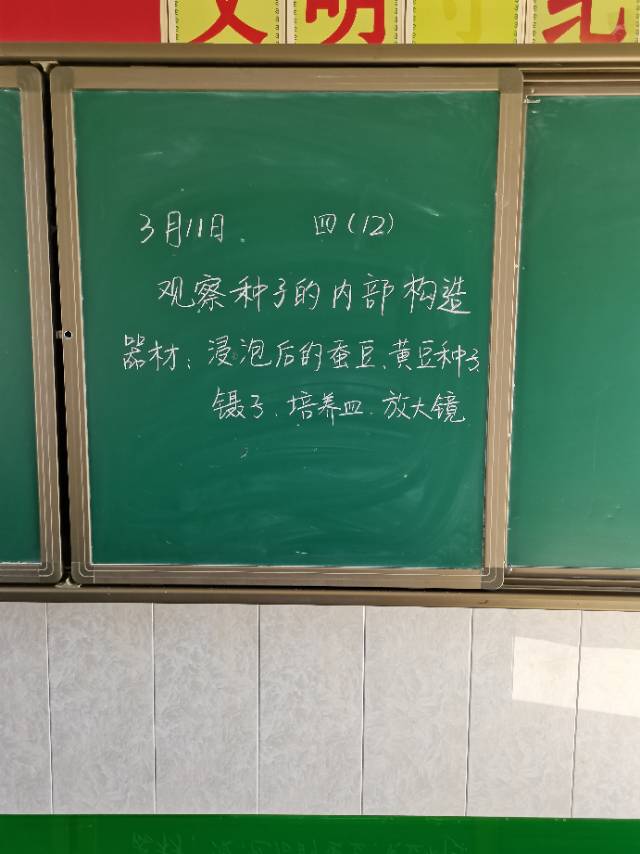 文明守纪
3月11日. 四(12)
观察种子的内部构造
器材：浸泡后的蚕豆、黄豆种子
镊子、培养皿、放大镜